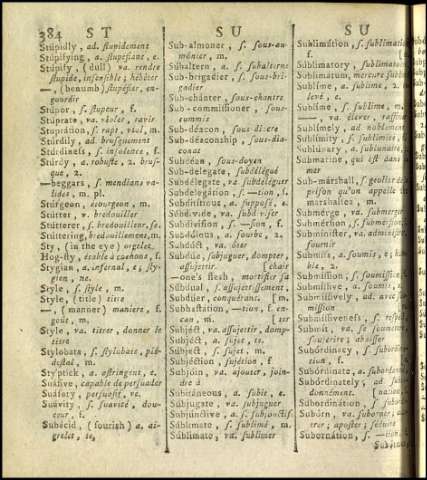 384 S T S U S U
Stúpidly, ad. stupidement
Stúpifying, a. stupefiant, e.
Stúpify, (dull) va. rendre
stupide, insensible; hébéter
—, (benumb) stupéfier, en-
gourdir
Stúpor, s. stupeur, f.
Stúprate, va. violer, ravir
Stuprátion, s. rapt, viol, m.
Stúrdily, ad. brusquement
Stúrdiness, s. insolence, f.
Stúrdy, a. robuste, 2. brus-
que, 2.
—beggars, s. mendians va-
lides, m. pl.
Stúrgeon, estourgeon, m.
Stútter, v. bredouiller
Stútterer, s. bredouilleur, se.
Stúttering, bredouillement, m.
Sty, (in the eye) orgelet,
Hog-sty, étable à cochons, f.
Stygian, a. infernal, e; sty-
gien, ne.
Style, s. style, m.
Style, (title) titre
—, (manner) maniere, f.
goût, m.
Style, va. titrer, donner le
titre
Stylobats, s. stylobate, pié-
destal, m.
Styptick, a. astringent, e.
Suásive, capable de persuader
Suásory, persuasif, ve.
Suávity, s. suavité, dou-
ceur, f.
Subácid, (sourish) a. ai-
grelet, te,
Sub-almoner, s. sous-au-
mónier, m.
Subáltern, a. s. subalterne
Sub-brigadier, s. sous-bri-
gadier
Sub-chánter, sous-chantre
Sub-commissioner, sous-
commis
Sub-déacon, sous-diacre
Sub-déaconship, sous-dia-
conat
Subdéan, sous-doyen
Sub-délegate, subdélégué
Subdélegate, va subdéléguer
Subdelegátion, s. —tion, f.
Subdititious, a. supposé, e.
Súbdivide, va. subdiviser
Subdivísion, s. —sion, f.
Subdúlous, a. fourbe, 2.
Subdúct, va. ôter
Subdúe, subjuguer, dompter,
assujettir. [chair
—one's flesh, mortifier sa
Subdúal, s. assujettissement,
Subdúer, conquérant. [m.
Subhastátion, —tion, f. en-
can, m. [ter
Subjéct, va. assujettir, domp-
Súbject, a. sujet, te.
Súbject, s. sujet, m.
Subjéction, sujétion, f
Subjóin, va. ajouter, join-
dre à
Subitáneous, a. subit, e.
Súbjugate, va. subjuguer
Subjúnctive, a. s. subjonctif
Súblimate, s. sublimé, m.
Súblimate, va. sublimer
Sublimátion, s. sublimatio
Sublimatory, sublimatoi
Sublimátum, mercure subli
Sublíme, a. sublime, 2.
levé, e.
Sublíme, s. sublime, m.
—, va. élever, raffine
Sublímely, ad noblement
Sublímity, s. sublimité, f.
Sublúnary, a. sublunaire,
Submarine, qui est dans
mer
Sub-márshall, s. geolier de
prison qu'on appelle
marshalzea, m.
Submérge, va. submerger
Submérsion, s. submersion
Subminister, va. administr
fournir
Submíss, a. soumis, e; hum
ble, 2.
Submíssion, s. soumission,
Submíssive, a. soumis, e
Submíssively, ad. avec sou
mission
Submíssiveness, s. respect
Submít, va. se soumettre
souscrire; abaisser
Subórdinacy, s. subordin
tion, f.
Subórdinate, a. subordonné
Subórdinately; ad. sub
donnément. [na
Subordinátion, subordin
Subórn, va. suborner,
trer; aposter; séduire
Subornátion, s. —tion,